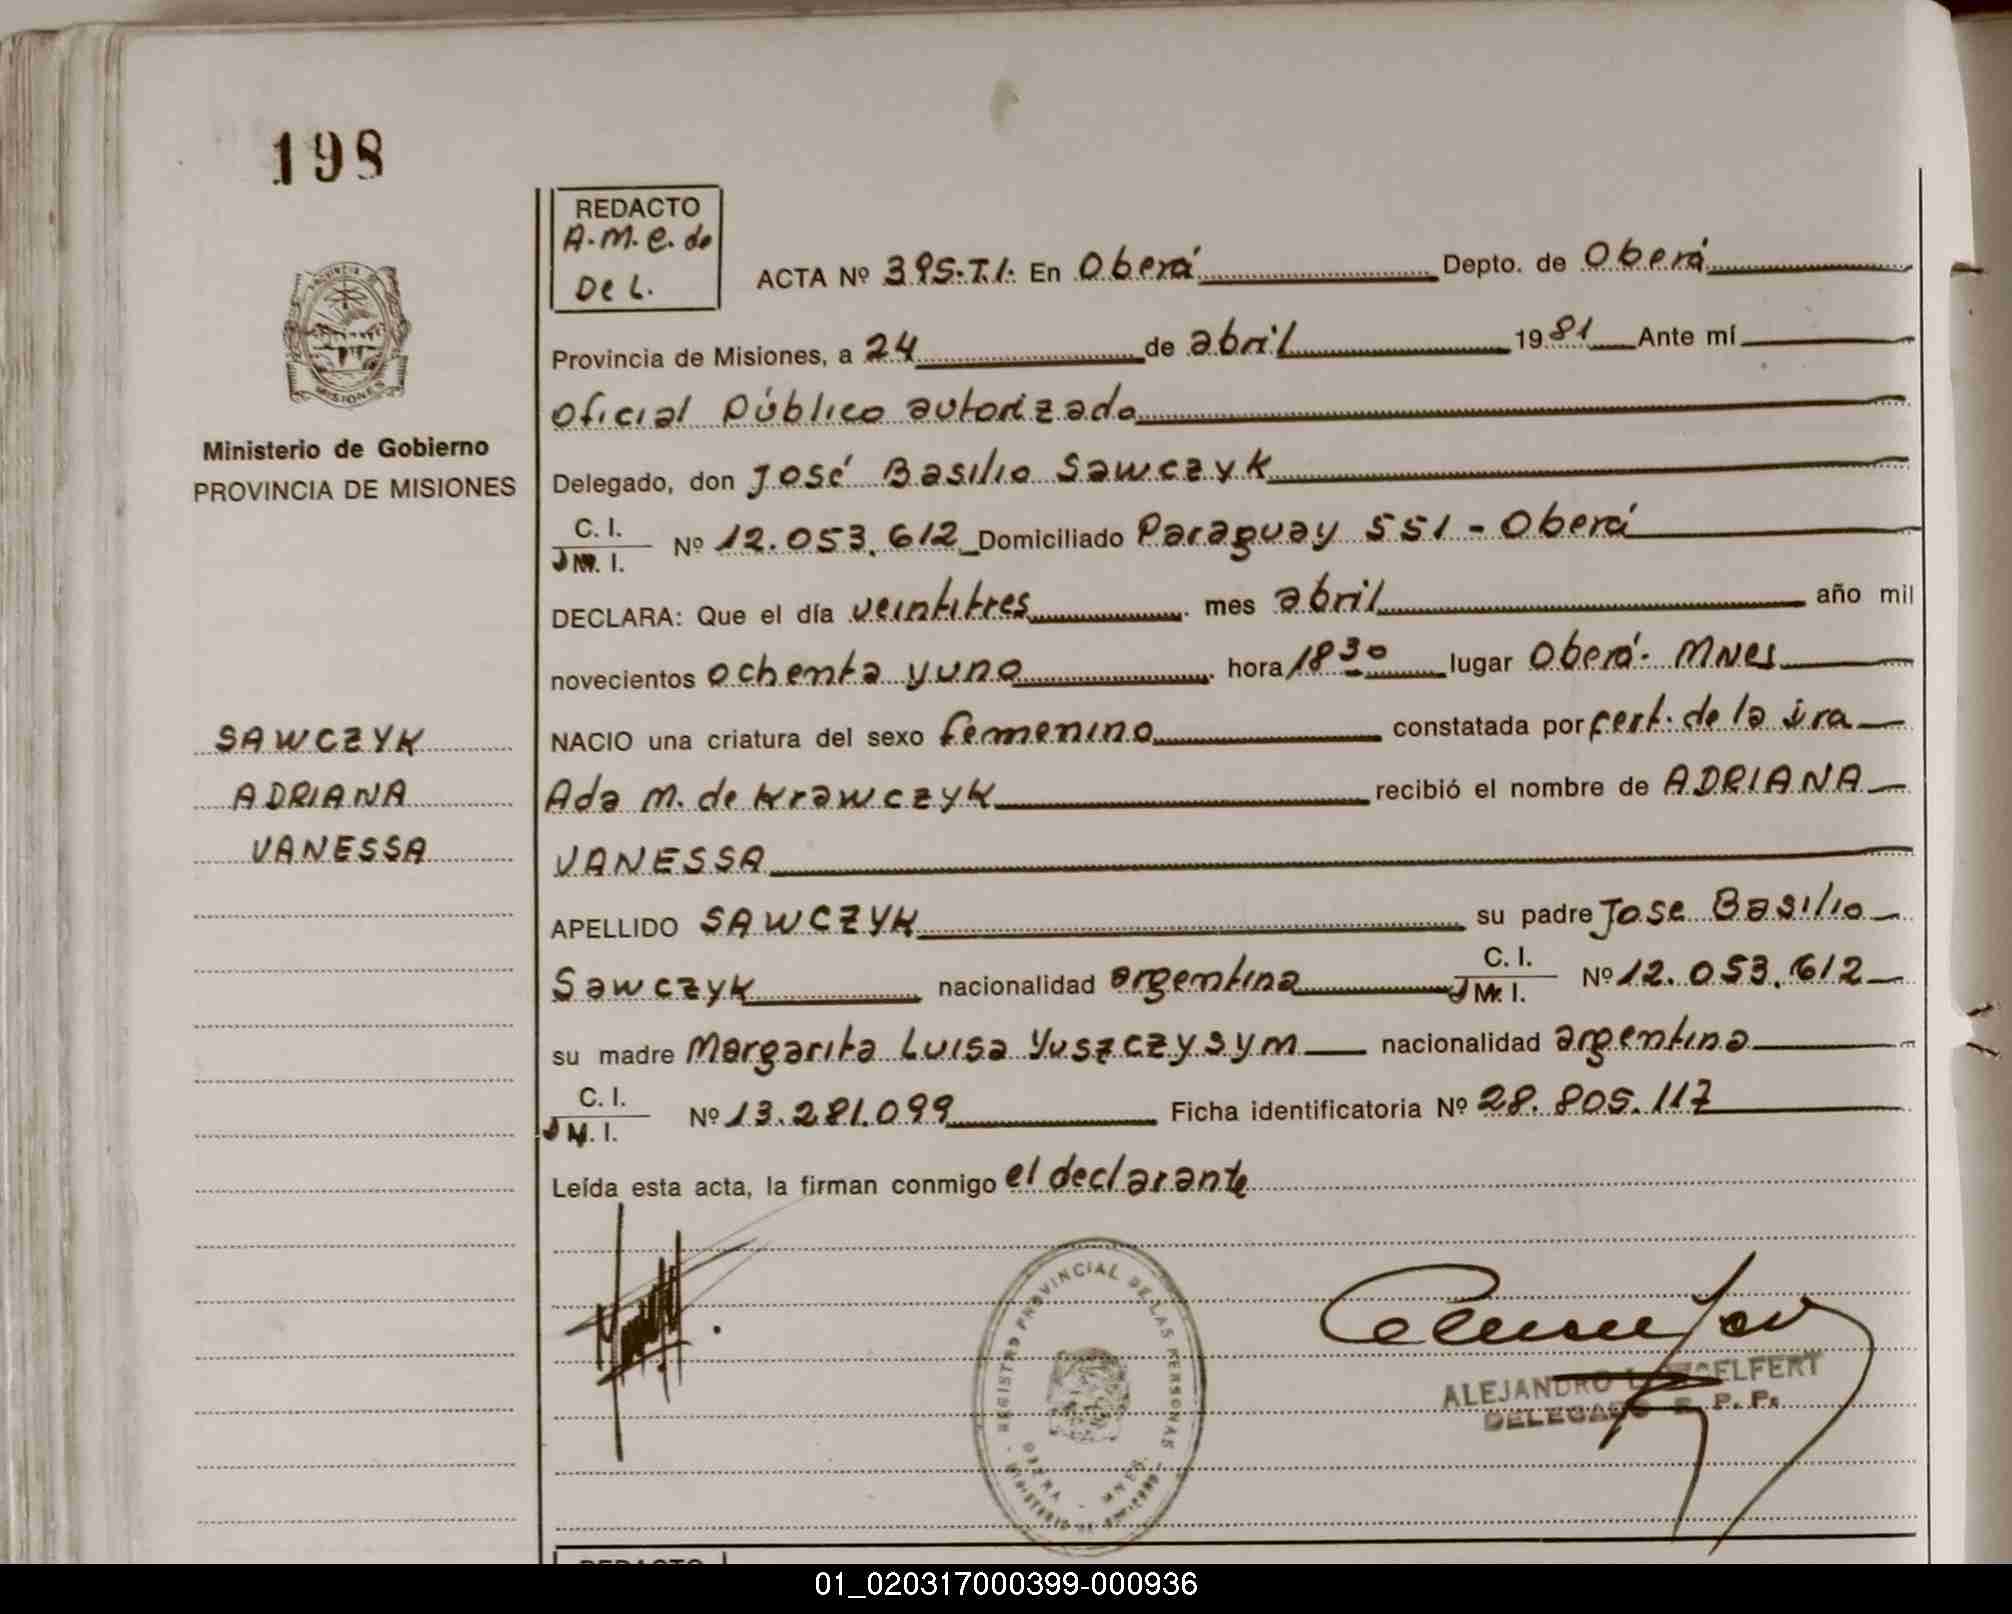 198
REDACTO
A.M.E. de
De L.
ACTA Nº 395.T.I. En Oberá Depto. de Oberá
Provincia de Misiones, a 24 de abril 1981 Ante mí
Oficial Público autorizado
Ministerio de Gobierno
PROVINCIA DE MISIONES
Delegado, don José Basilio Sawczyk
C. I.
M. I. Nº 12.053.612 Domiciliado Paraguay 551 - Oberá
DECLARA: Que el día veintitres mes abril año mil
novecientos ochenta y uno hora 18 30 lugar Oberá- Mnes
SAWCZYK
ADRIANA
VANESSA
NACIO una criatura del sexo femenino constatada por cert. de la sra
Ada M. de Krawczyk recibió el nombre de ADRIANA
VANESSA
APELLIDO SAWCZYK su padre Jose Basilio
Sawczyk nacionalidad argentina C. I. M. I. Nº 12.053.612
su madre Margarita Luisa Yuszczyszym nacionalidad argentina
C. I.
M. I. Nº 13.281.099 Ficha identificatoria Nº 28.805.117
Leída esta acta, la firman conmigo el declarante
REGISTRO PROVINCIAL DE LAS PERSONAS
OBERA - MNES
ALEJANDRO
DELEGADO R. P. P.
REDACTO
01_020317000399-000936